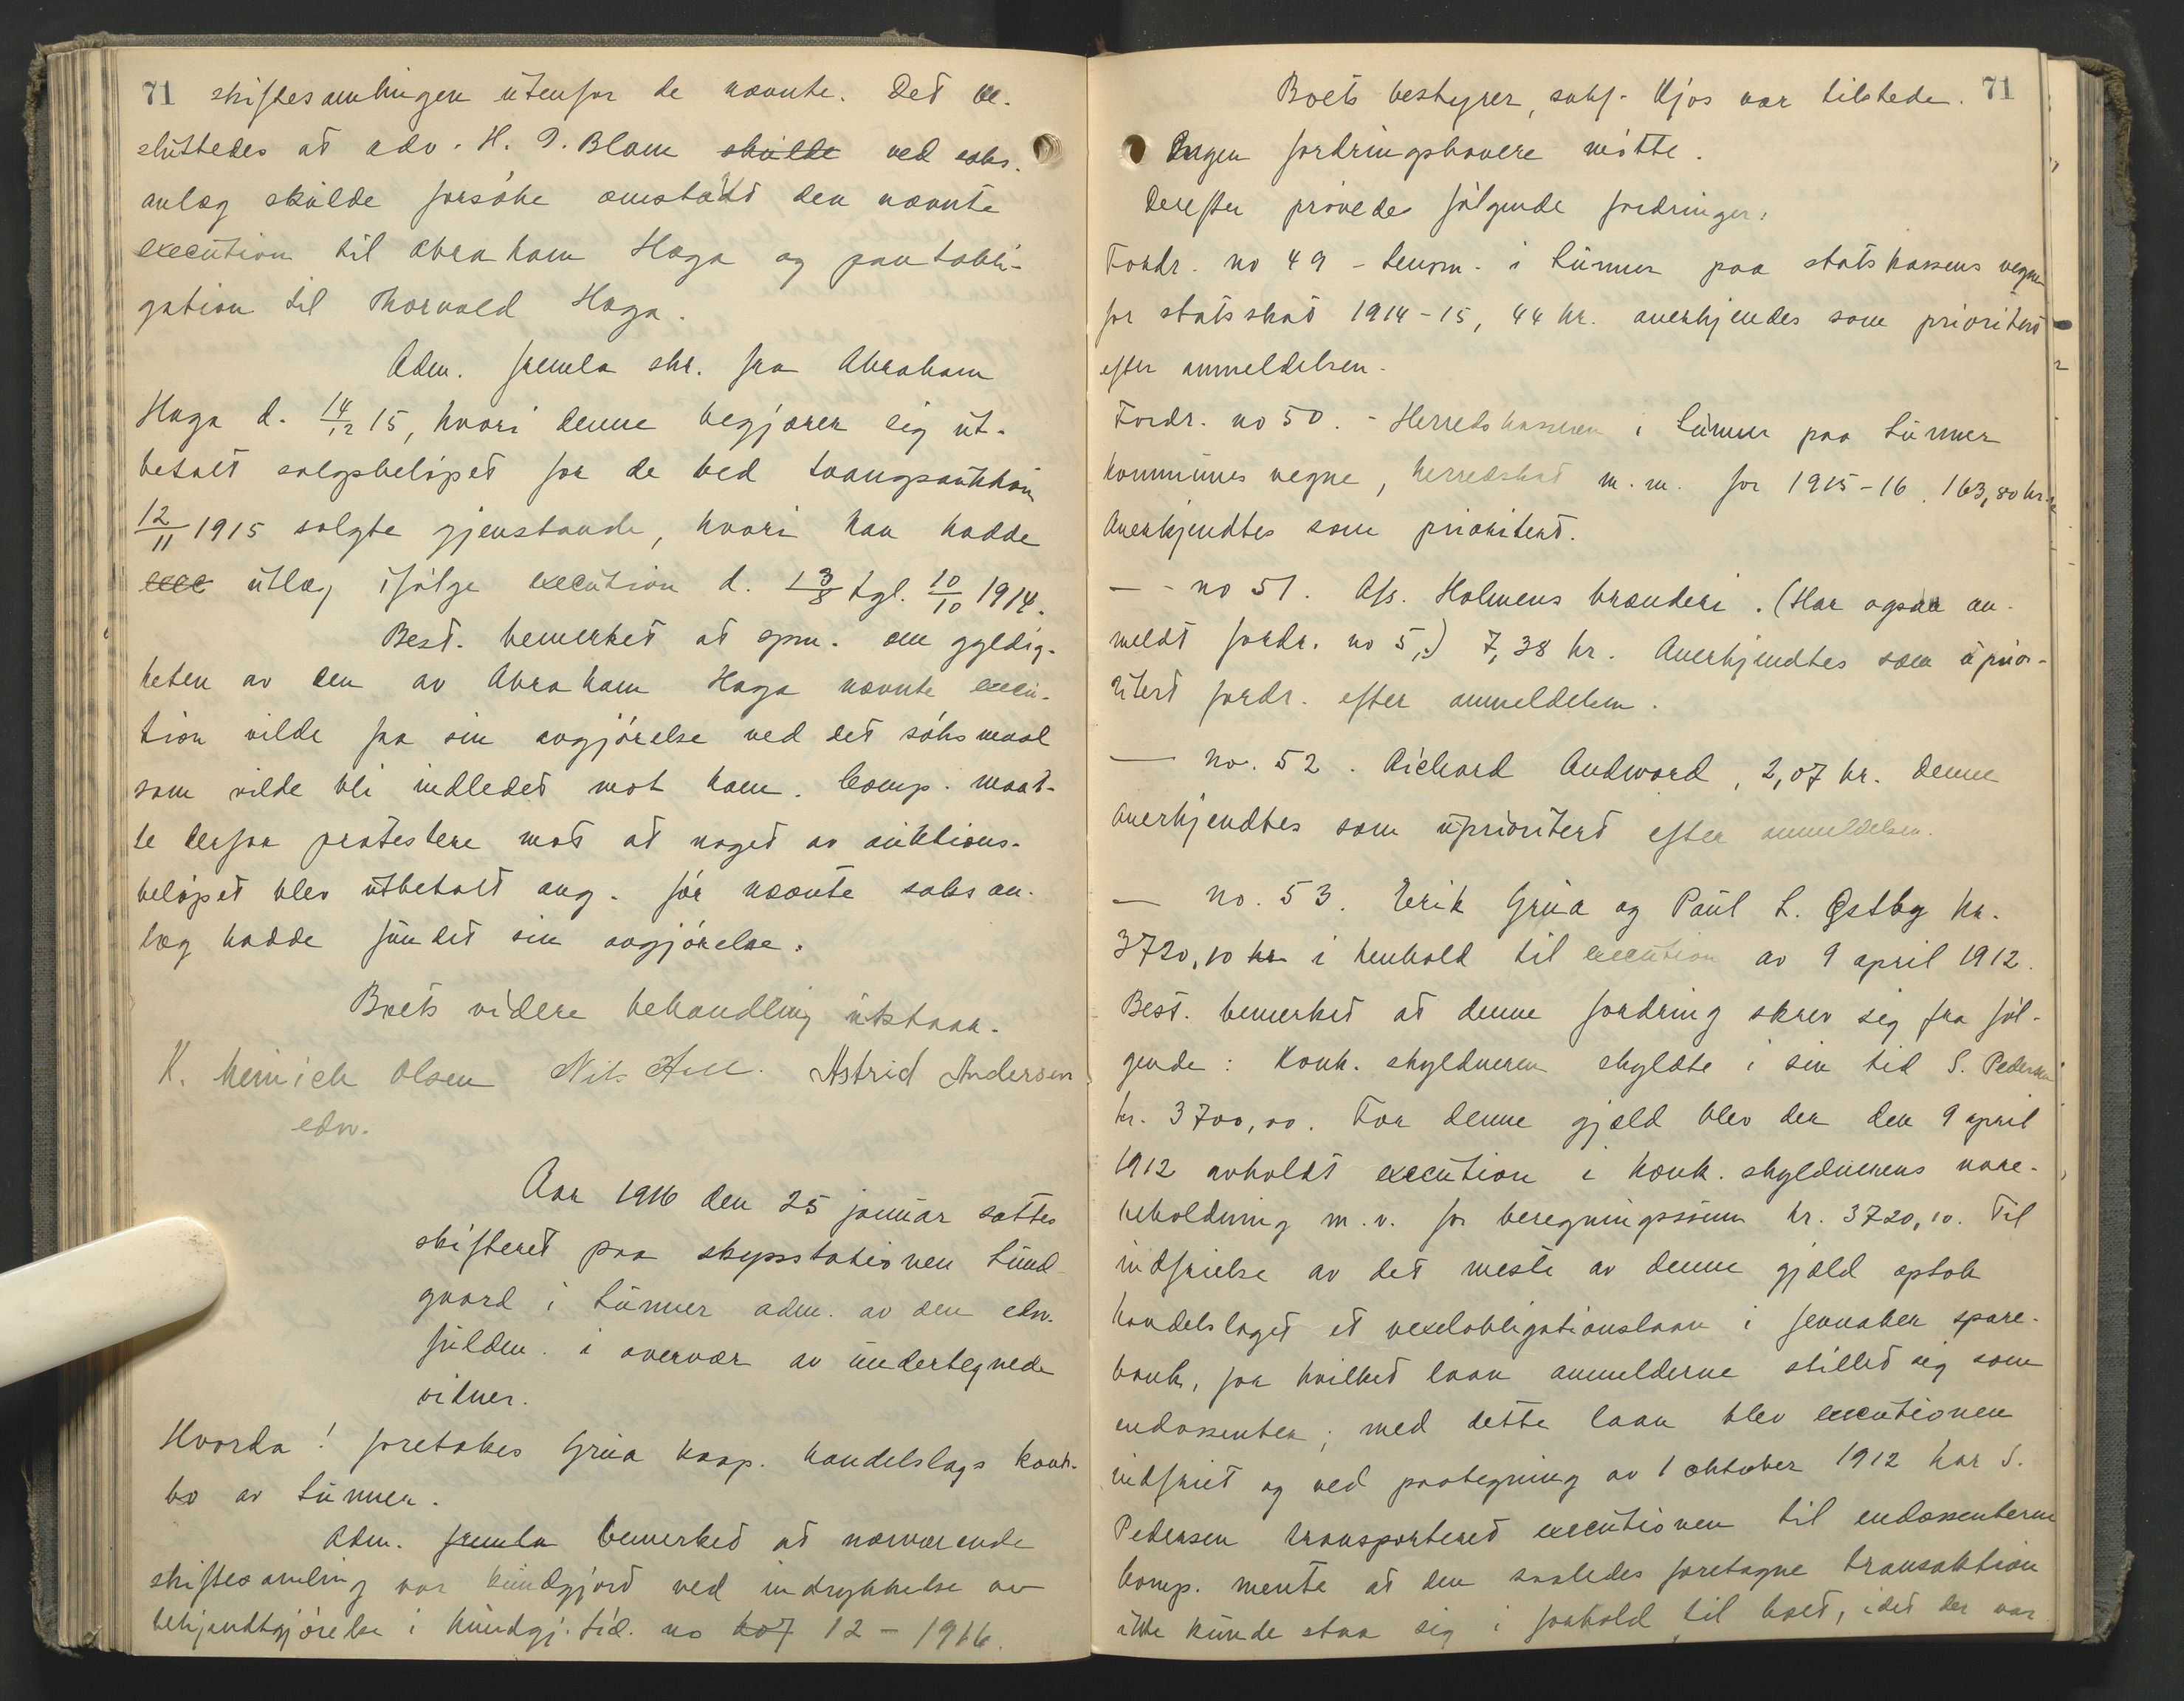 71 skiftesamlingen utenfor de nævnte. Det be-
sluttedes at adv. H. I. Blom skulde ved saks-
anlæg skulde forsøke omstødt den nævnte
execution til Abraham Haga og pantobli-
gation til Thorvald Haga.
Adm. fremla skr. fra Abraham
Haga d. 14/12 15, hvori denne begjærer sig ut-
betalt salgsbeløpet for de ved tvangsauktion
12/11 1915 solgte gjenstande, hvori han hadde
exec utlæg ifølge execution d. 13/8 tgl. 10/10 1914.
Best. bemerket at spm. om gyldig-
heten av den av Abraham Haga nævnte execu-
tion vilde faa sin avgjørelse ved det søksmaal
som vilde bli indledet mot ham. Comp. maat-
te derfor protestere mot at noget av auktions-
beløpet blev utbetalt ang. før nævnte saksan-
læg hadde fundet sin avgjørelse.
Boets videre behandling utstaar.
K. Meinich Olsen Nils Astrid Andersen
edv.
Aar 1916 den 25 januar sattes
skifteret paa skysstationen Lund
gaard i Lunner adm. av den edv.
fuldm. i overvær av undertegnede
vidner.
Hvorda! foretokes Grua koop. handelslags konk.
bo av Lunner.
Adm. fremla bemerket at nærværende
skiftesamling var kundgjort ved indrykkelse av
bekjendtgjørelse i kundgj. tid. no 12 - 1916.
Boets bestyrer, sakf. Kjos var tilstede. 71
Ingen fordringshavere møtte.
Derefter prøvedes følgende fordringer:
Fordr. no 49 - Lensm. i Lunner paa statskassens vegne
for statsskat 1914-15, 44 kr. anerkjendes som prioritert
efter anmeldelsen.
Fordr. no 50. - Herredskassereren i Lunner paa Lunner
kommunes vegne, herredskat m.m. for 1915-16, 163,80 kr.
Anerkjendtes som prioritert.
— - no 51. A/s. Holmens brænderi. (Har ogsaa an-
meldt fordr. no 5,) 7,38 kr. Anerkjendtes som uprior-
itert fordr. efter anmeldelsen.
— no. 52. Richard Andvord, 2,07 kr. denne
anerkjendtes som uprioritert efter anmeldelsen.
— no. 53. Erik Grua og Paul L. Østby kr.
3720,10 kr i henhold til execution av 9 april 1912.
Best. bemerket at denne fordring skrev sig fra føl-
gende: Konk. skyldneren skyldte i sin tid S. Pedersen
kr. 3700,00. For denne gjæld blev der den 9 april
1912 avholdt execution i konk. skyldnerens vare-
beholdning m.v. for beregningssum kr. 3720,10. Til
indfrielse av det meste av denne gjæld optok
handelslaget et vexelobligationslaan i Jevnaker spare-
bank, for hvilket laan anmelderne stillet sig som
endossenter; med dette laan blev executionen
indfriet og ved paategning av 1 oktober 1912 har S.
Pedersen transporteret executionen til endossenterne
Comp. mente at den saaledes foretagne transaktion
ikke kunde staa sig i forhold til boet, idet der var